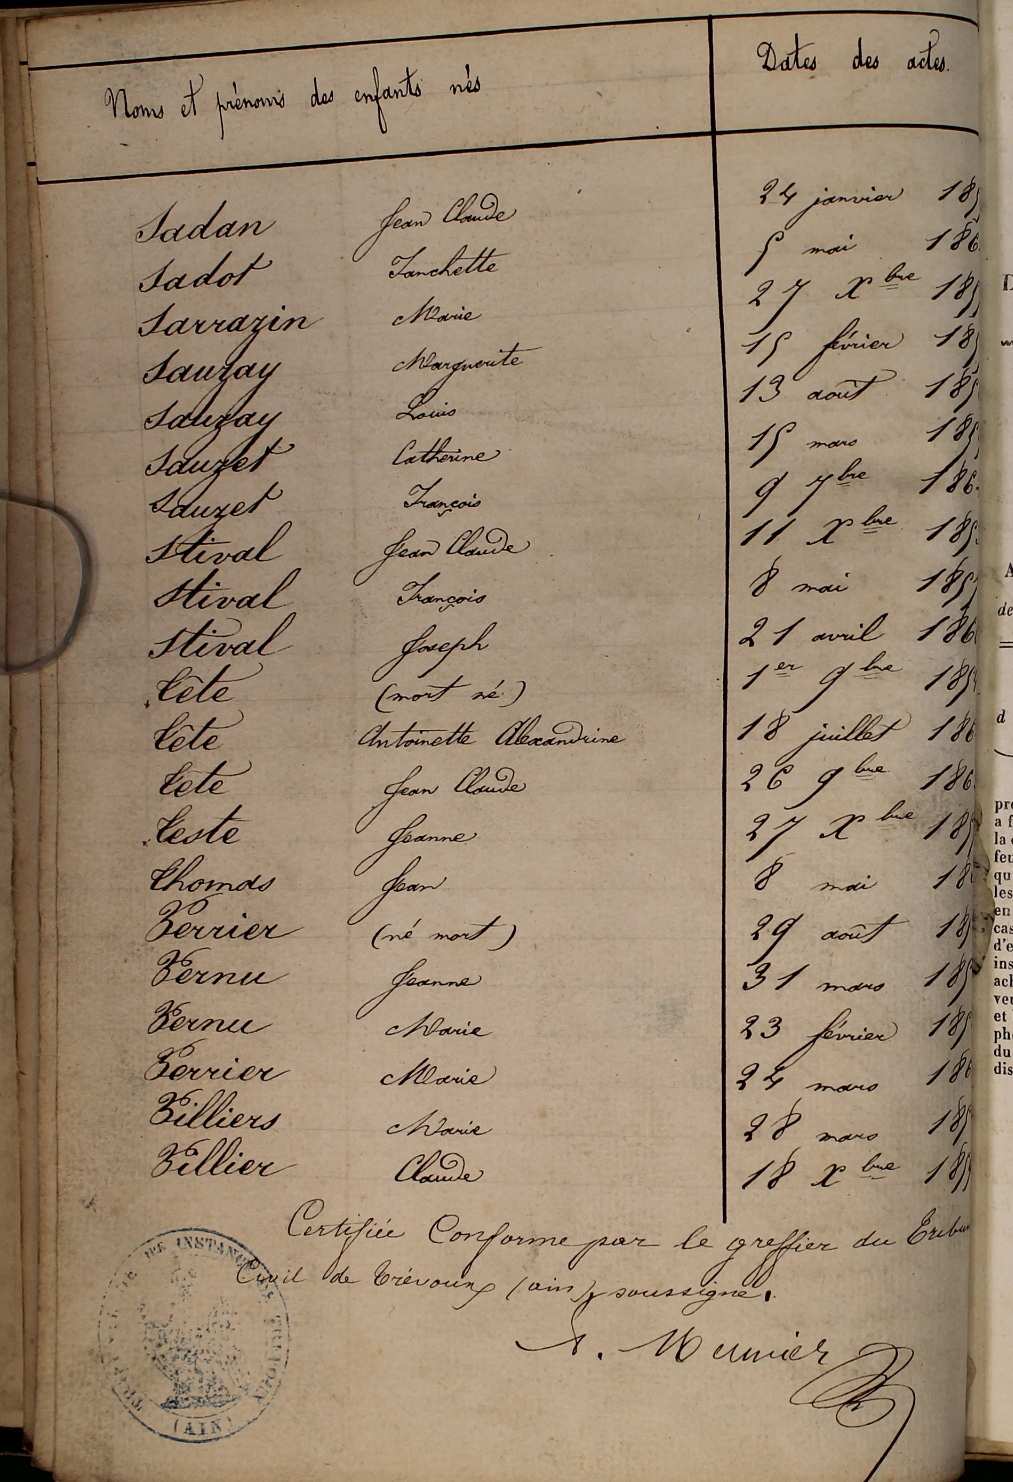 Noms et prénoms des enfants nés Dates des actes.
Sadan Jean Claude 24 janvier 185
Sadot Fanchette 5 mai 186
Sarrazin Marie 27 Xbre 185
Sauzay Marguerite 15 février 185
Sauzay Louis 13 août 185
Sauzet Catherine 15 mars 185
Sauzet François 9 7bre 186
Stival Jean Claude 11 Xbre 185
Stival François 8 mai 185
Stival Joseph 21 avril 186
Tête (mort né) 1er 9bre 185
Tête Antoinette Alexandrine 18 juillet 186
Tête Jean Claude 26 9bre 186
Teste Jeanne 27 Xbre 185
Thomas Jean 8 mai 18
Verrier (né mort) 29 août 185
Vernu Jeanne 31 mars 185
Vernu Marie 23 février 185
Verrier Marie 24 mars 186
Villiers Marie 28 mars 185
Villier Claude 18 Xbre 185
Certifiée Conforme par le greffier du Tribu
Civil de Trévoux (ain) soussigné.
Meunier
INSTANCE
(AIN)